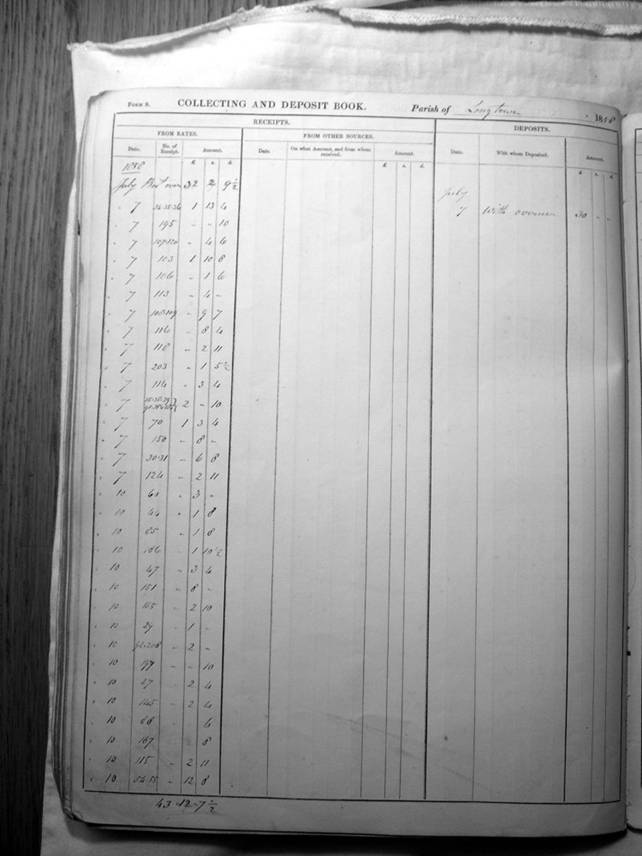 FORM 8. COLLECTING AND DEPOSIT BOOK. Parish of Longtown 1858
RECEIPTS. DEPOSITS.
FROM RATES. FROM OTHER SOURCES.
Date. No. of Receipt. Amount. Date. On what Account, and from whom received. Amount. Date. With whom Deposited. Amount.
£ s. d. £ s. d. £ s. d.
1858
July Bro't over 32 2 9½ July
" 7 1 13 4 7 With overseer 30 - -
" 7 195 - - 10
" 7 - 4 6
" 7 103 1 10 8
" 7 106 - 1 6
" 7 113 - 4 -
" 7 - 9 7
" 7 116 - 8 4
" 7 118 - 2 11
" 7 203 - 1 5½
" 7 114 - 3 4
" 7 2 - 10
" 7 70 1 3 4
" 7 150 - 8 -
" 7 30-31 - 6 8
" 7 124 - 2 11
" 10 - 3 -
" 10 44 - 1 8
" 10 - 1 8
" 10 - 1 10½
" 10 47 - 3 4
" 10 151 - 8 -
" 10 - 2 10
" 10 29 - 1 -
" 10 - 2 -
" 10 - - 10
" 10 - 2 4
" 10 - 2 4
" 10 6
" 10 167 8
" 10 115 - 2 11
" 10 54-55 - 12 8
43-12-7½